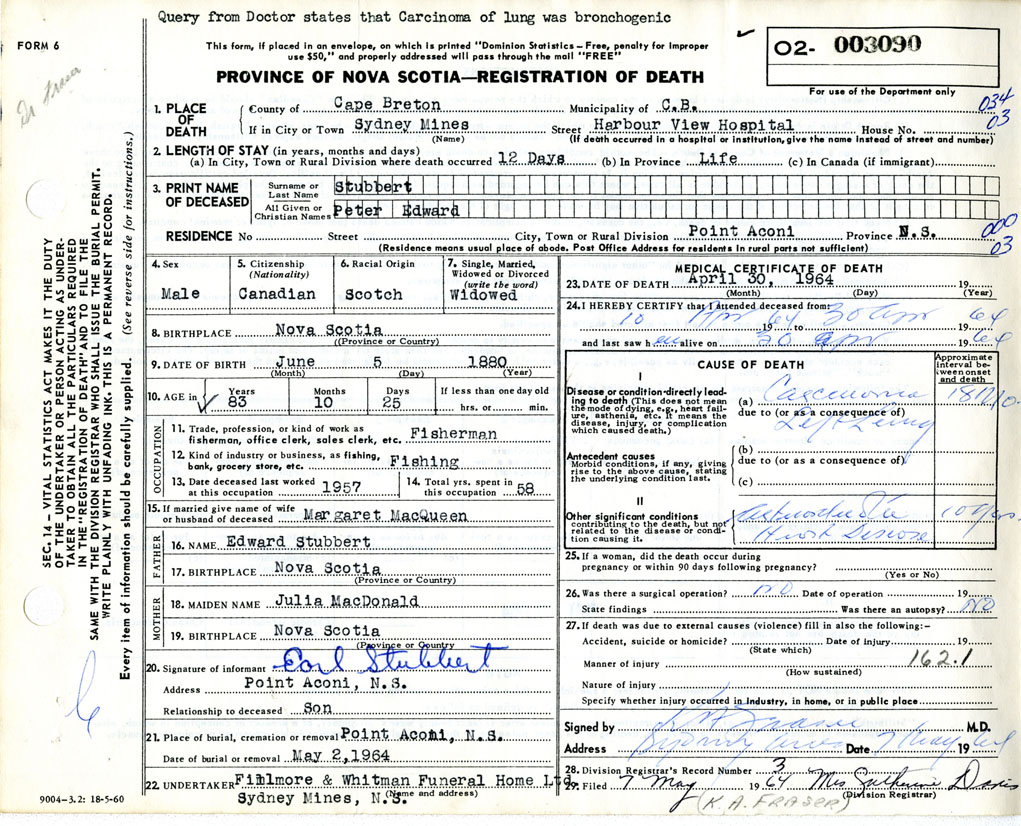 Query from Doctor states that Carcinoma of lung was bronchogenic
FORM 6
This form, if placed in an envelope, on which is printed "Dominion Statistics – Free, penalty for improper
use $50," and properly addressed will pass through the mail "FREE"
O2- 003090
For use of the Department only
Dr Fraser
PROVINCE OF NOVA SCOTIA—REGISTRATION OF DEATH
SEC. 14 – VITAL STATISTICS ACT MAKES IT THE DUTY
OF THE UNDERTAKER OR PERSON ACTING AS UNDER-
TAKER TO OBTAIN ALL THE PARTICULARS REQUIRED
IN THE "REGISTRATION OF DEATH" AND TO FILE THE
SAME WITH THE DIVISION REGISTRAR WHO SHALL ISSUE THE BURIAL PERMIT.
WRITE PLAINLY WITH UNFADING INK. THIS IS A PERMANENT RECORD.
Every item of information should be carefully supplied. (See reverse side for instructions.)
1. PLACE OF DEATH
County of Cape Breton Municipality of C.B. 034
If in City or Town Sydney Mines Street Harbour View Hospital House No. 03
(Name) (If death occurred in a hospital or institution, give the name instead of street and number)
2. LENGTH OF STAY (in years, months and days)
(a) In City, Town or Rural Division where death occurred 12 Days (b) In Province Life (c) In Canada (if immigrant)
3. PRINT NAME OF DECEASED
Surname or Last Name Stubbert
All Given or Christian Names Peter Edward
RESIDENCE No Street City, Town or Rural Division Point Aconi Province N.S. 000
03
(Residence means usual place of abode. Post Office Address for residents in rural parts not sufficient)
4. Sex Male
5. Citizenship (Nationality) Canadian
6. Racial Origin Scotch
7. Single, Married, Widowed or Divorced (write the word) Widowed
8. BIRTHPLACE Nova Scotia
(Province or Country)
9. DATE OF BIRTH June 5 1880
(Month) (Day) (Year)
10. AGE in Years 83 Months 10 Days 25 If less than one day old hrs. or min.
OCCUPATION
11. Trade, profession, or kind of work as
fisherman, office clerk, sales clerk, etc. Fisherman
12. Kind of industry or business, as fishing,
bank, grocery store, etc. Fishing
13. Date deceased last worked at this occupation 1957
14. Total yrs. spent in this occupation 58
15. If married give name of wife
or husband of deceased Margaret MacQueen
FATHER
16. NAME Edward Stubbert
17. BIRTHPLACE Nova Scotia
(Province or Country)
MOTHER
18. MAIDEN NAME Julia MacDonald
19. BIRTHPLACE Nova Scotia
(Province or Country
20. Signature of informant Earl Stubbert
Address Point Aconi, N.S.
Relationship to deceased Son
21. Place of burial, cremation or removal Point Aconi, N.S.
Date of burial or removal May 2, 1964
22. UNDERTAKER Fillmore & Whitman Funeral Home Ltd.
Sydney Mines, N.S. (Name and address)
9004-3.2: 18-5-60
MEDICAL CERTIFICATE OF DEATH
23. DATE OF DEATH April 30, 1964 19
(Month) (Day) (Year)
24. I HEREBY CERTIFY that I attended deceased from
10 Apr 1964 to 30 Apr 64
and last saw h alive on 30 Apr 1964
CAUSE OF DEATH
Approximate interval between onset and death
I
Disease or condition directly leading to death (This does not mean the mode of dying, e.g., heart failure, asthenia, etc. It means the disease, injury, or complication which caused death.)
(a) Carcinoma
due to (or as a consequence of)
Left Lung
Antecedent causes
Morbid conditions, if any, giving rise to the above cause, stating the underlying condition last.
(b)
due to (or as a consequence of)
(c)
II
Other significant conditions
contributing to the death, but not related to the disease or condition causing it.
Heart Disease 10 yrs.
25. If a woman, did the death occur during
pregnancy or within 90 days following pregnancy?
(Yes or No)
26. Was there a surgical operation? NO Date of operation 19
State findings Was there an autopsy? NO
27. If death was due to external causes (violence) fill in also the following:-
Accident, suicide or homicide? Date of injury 19
(State which)
Manner of injury 162.1
(How sustained)
Nature of injury
Specify whether injury occurred in Industry, in home, or in public place
Signed by K A Fraser M.D.
Address Sydney Mines Date 7 May 1964
28. Division Registrar's Record Number 3
29. Filed 7 May 1964 Mrs Davis
(K. A. FRASER) (Division Registrar)